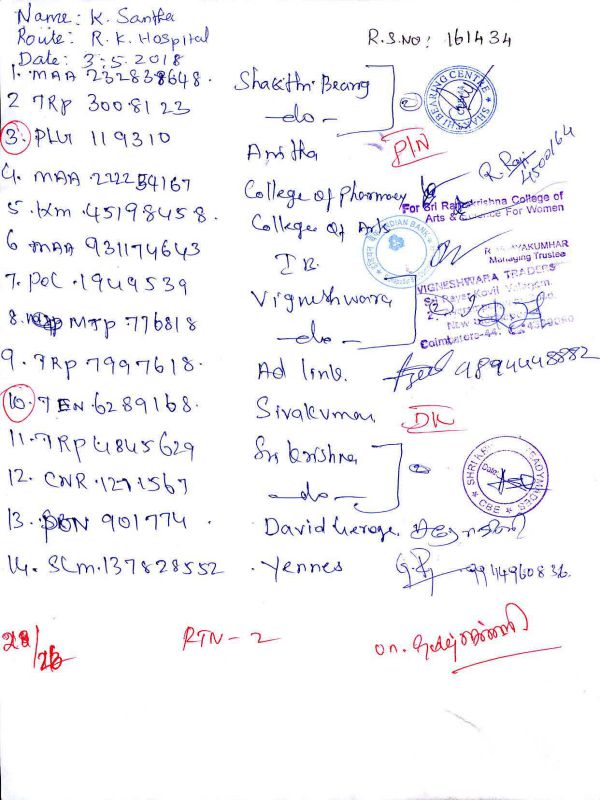 Name: K. Santha
Route: R. K. Hospital
R.S.NO: 161434
Date: 3.5.2018
1. MAA 232838648. Shakthi Bearng
SHAKTHI BEARING CENTRE
2 TRp 3008123 -do-
3. PLU 119310 Anitha P/N
4. MAA 222254167 College of pharmacy
5. Km. 45198458. College of Arts
For Sri Ramakrishna College of
Arts & Science For Women
6 MAA 931174643 I B.
INDIAN BANK
R. VIJAYAKUMHAR
Managing Trustee
7. POC. 1949539 Vigneshwara
VIGNESHWARA TRADERS
8. MTP 776818 -do-
Coimbatore-44.
9. TRp 7997618. Ad link. 9894448882
10. TEN 6289168. Sivakumar DK
11. TRp 4845629 Sri krishna
12. CNR. 1271567 -do-
CBE
13. 901774. David
14. SCm. 137828552. Yennes 9944960836.
28/26 RTN-2